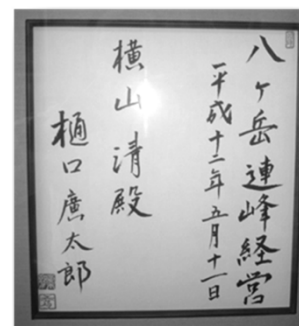 八ヶ岳連峰経営
平成十二年五月十一日
横山清殿
樋口廣太郎